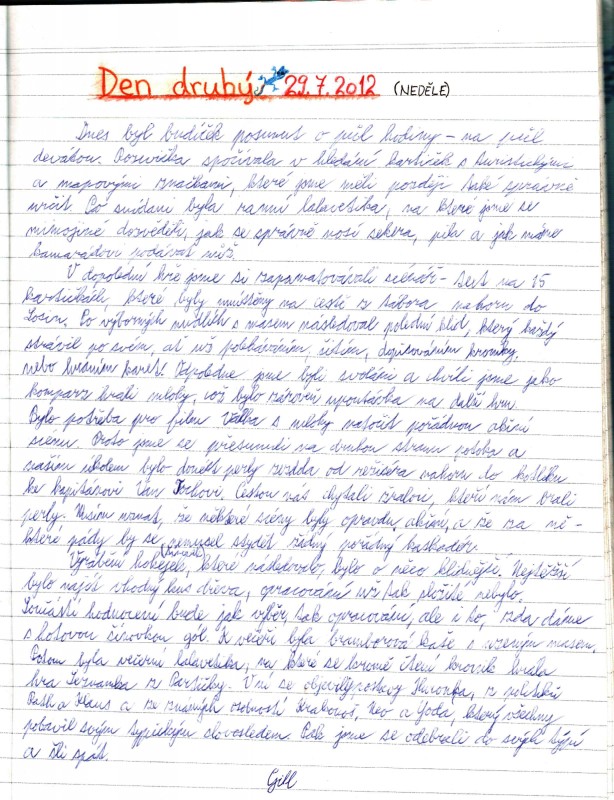 Den druhý 29.7.2012 (NEDĚLE)
Dnes byl budíček posunut o půl hodiny – na půl
devátou. Rozcvička spočívala v hledání kartiček s turistickými
a mapovými značkami, které jsme měli později také správně
určit. Po snídani byla ranní lalavetika, na které jsme se
mimojiné dozvěděli, jak se správně nosí sekera, pila a jak máme
kamarádovi podávat nůž.
V dopolední hře jsme si zapamatovávali scénář – text na 15
kartičkách, které byly umístěny na cestě z tábora nahoru do
Losin. Po výborných nudlích s masem následoval polední klid, který každý
strávil po svém, ať už poleháváním, čtením, dopisováním kroniky,
nebo hraním karet. Odpoledne jsme byli svoláni a chvíli jsme jako
komparz hráli mloky, což bylo zároveň upoutávka na další hru.
Bylo potřeba pro film Válka s mloky natočit pořádnou akční
scénu. Proto jsme se přesunuli na druhou stranu potoka a
naším úkolem bylo donést perly zezdola od režiséra nahoru do kotlíku
ke kapitánovi Van Tochovi. Cestou nás chytali žraloci, kteří nám brali
perly. Musím uznat, že některé scény byly opravdu akční, a že za ně-
které pády by se nemusel stydět žádný pořádný kaskadér.
Vyrábění hokejek, které následovalo, bylo o něco klidnější. Nejtěžší
bylo najít vhodný kus dřeva, opracování už tak složité nebylo.
Součástí hodnocení bude jak výběr, tak opracování, ale i to, zda dáme
s hotovou čírovkou gól. K večeři byla bramborová kaše s uzeným masem.
Potom byla večerní lalavetika, na které se kromě čtení kronik hrála
hra Seznamka z Partičky. V ní se objevily postavy z politiků
Bašta Klaus a ze známých osobností Krakonoš, Neo a Yoda, který všechny
pobavil svým typickým slovosledem. Pak jsme se odebrali do svých týpí
a šli spát.
Gill